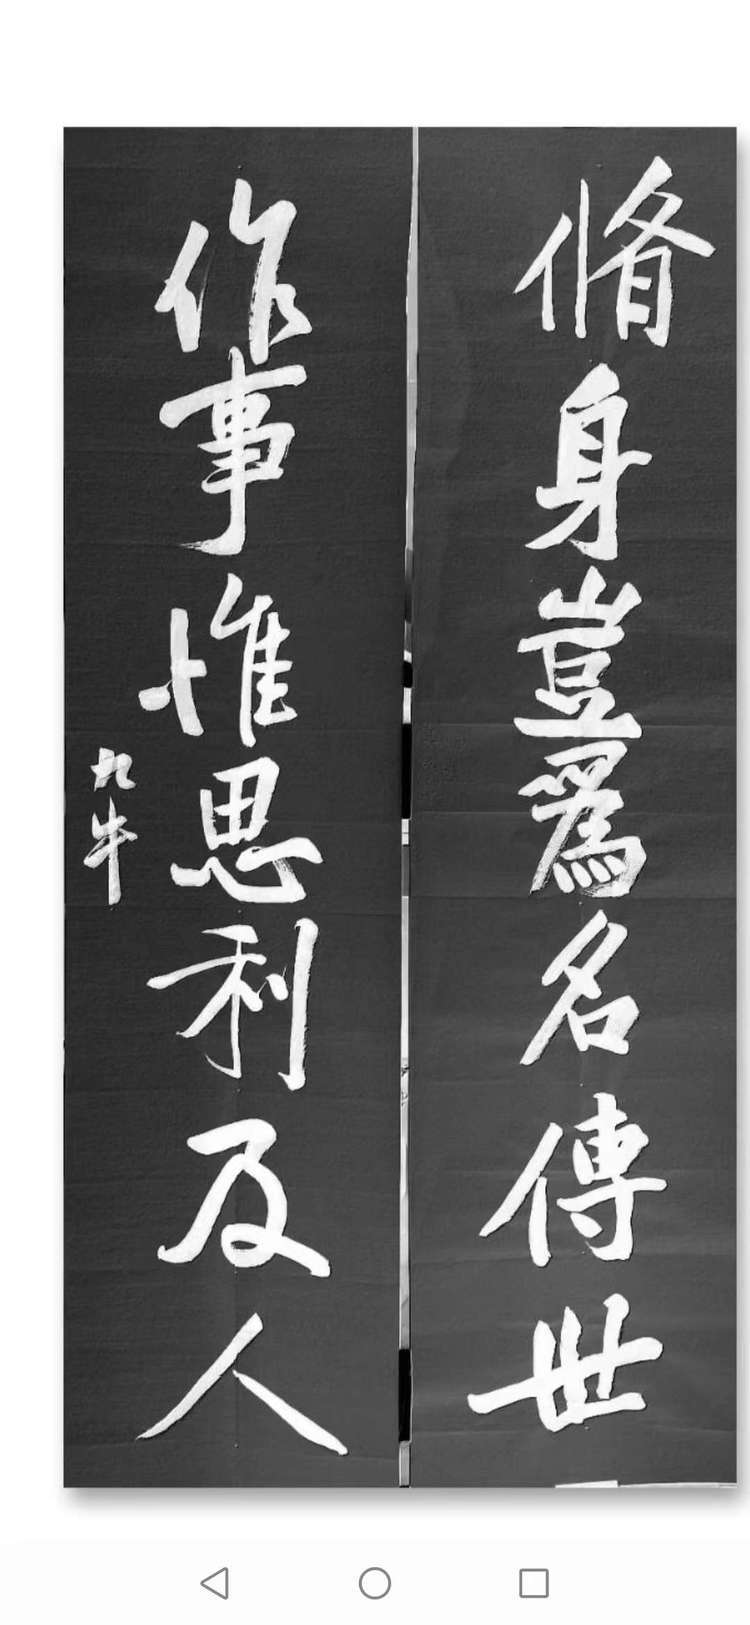 脩身豈爲名傳世
作事惟思利及人
九牛